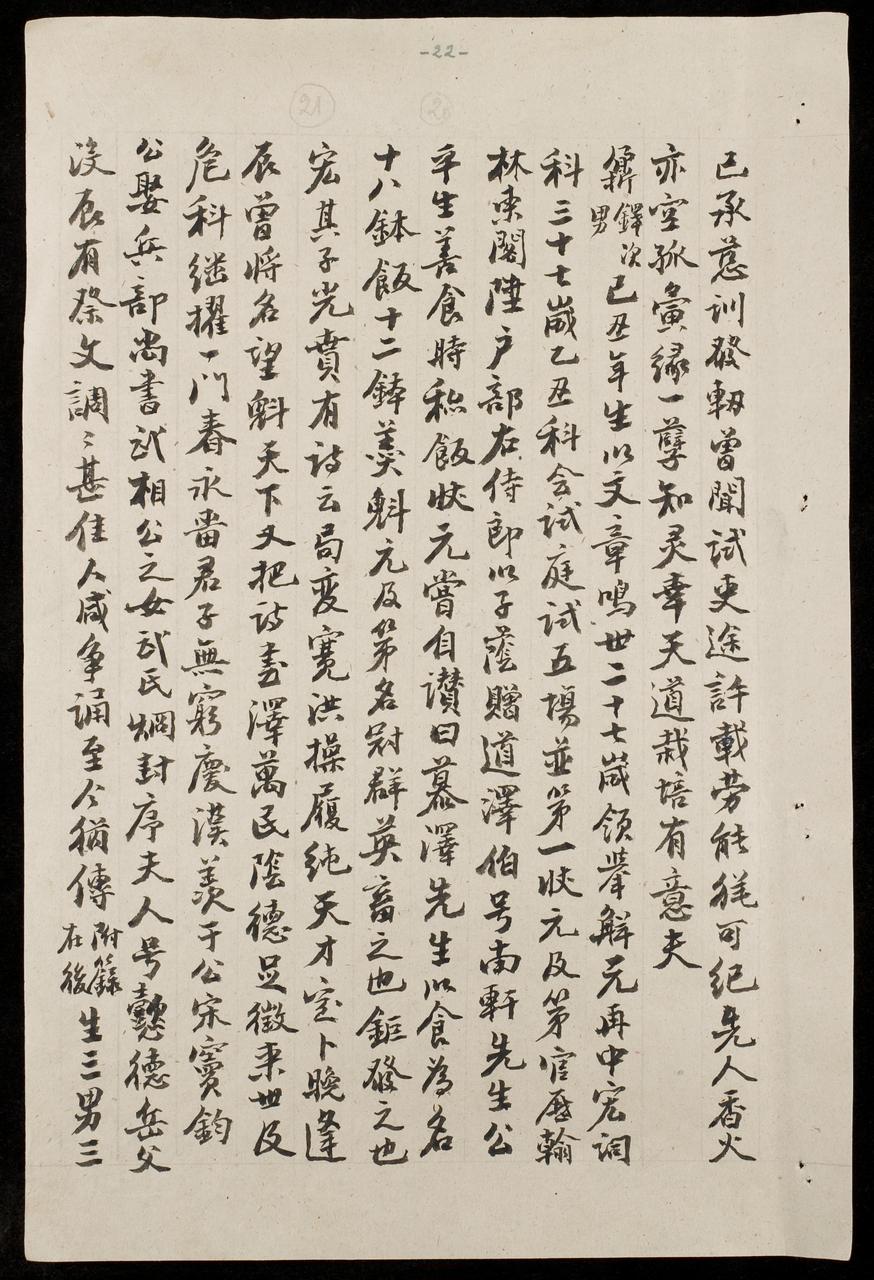 -22-
21
20
已承慈訓發軔曾聞試吏途許載勞能徒可紀先人香火
亦空孤夤緣一孽知灵幸天道栽培有意夫
鐸次男已丑年生以文章鳴世二十七歲領舉解元再中宏詞
科三十七歲乙丑科会試庭試五場並第一狀元及第官歷翰
林東閣陞户部右侍郎以子蔭贈道澤伯号南軒先生公
平生善食時称飯狀元嘗自讃曰慕澤先生以食為名
十八鉢飯十二鉢羹魁元及第名冠群英畜之也鉅發之也
宏其子光賁有詩云局变寬洪操履純天才室卜晚逢
辰曾將名望魁天下又把詩書澤萬民陰德足徵来世及
危科继擢一门春永畱君子無窮慶漢羡于公宋竇鈞
公娶兵部尚書武相公之女武氏烱封序夫人号懿德岳父
没辰有祭文調〻甚佳人咸争誦至今猶傳附籙在後生三男三